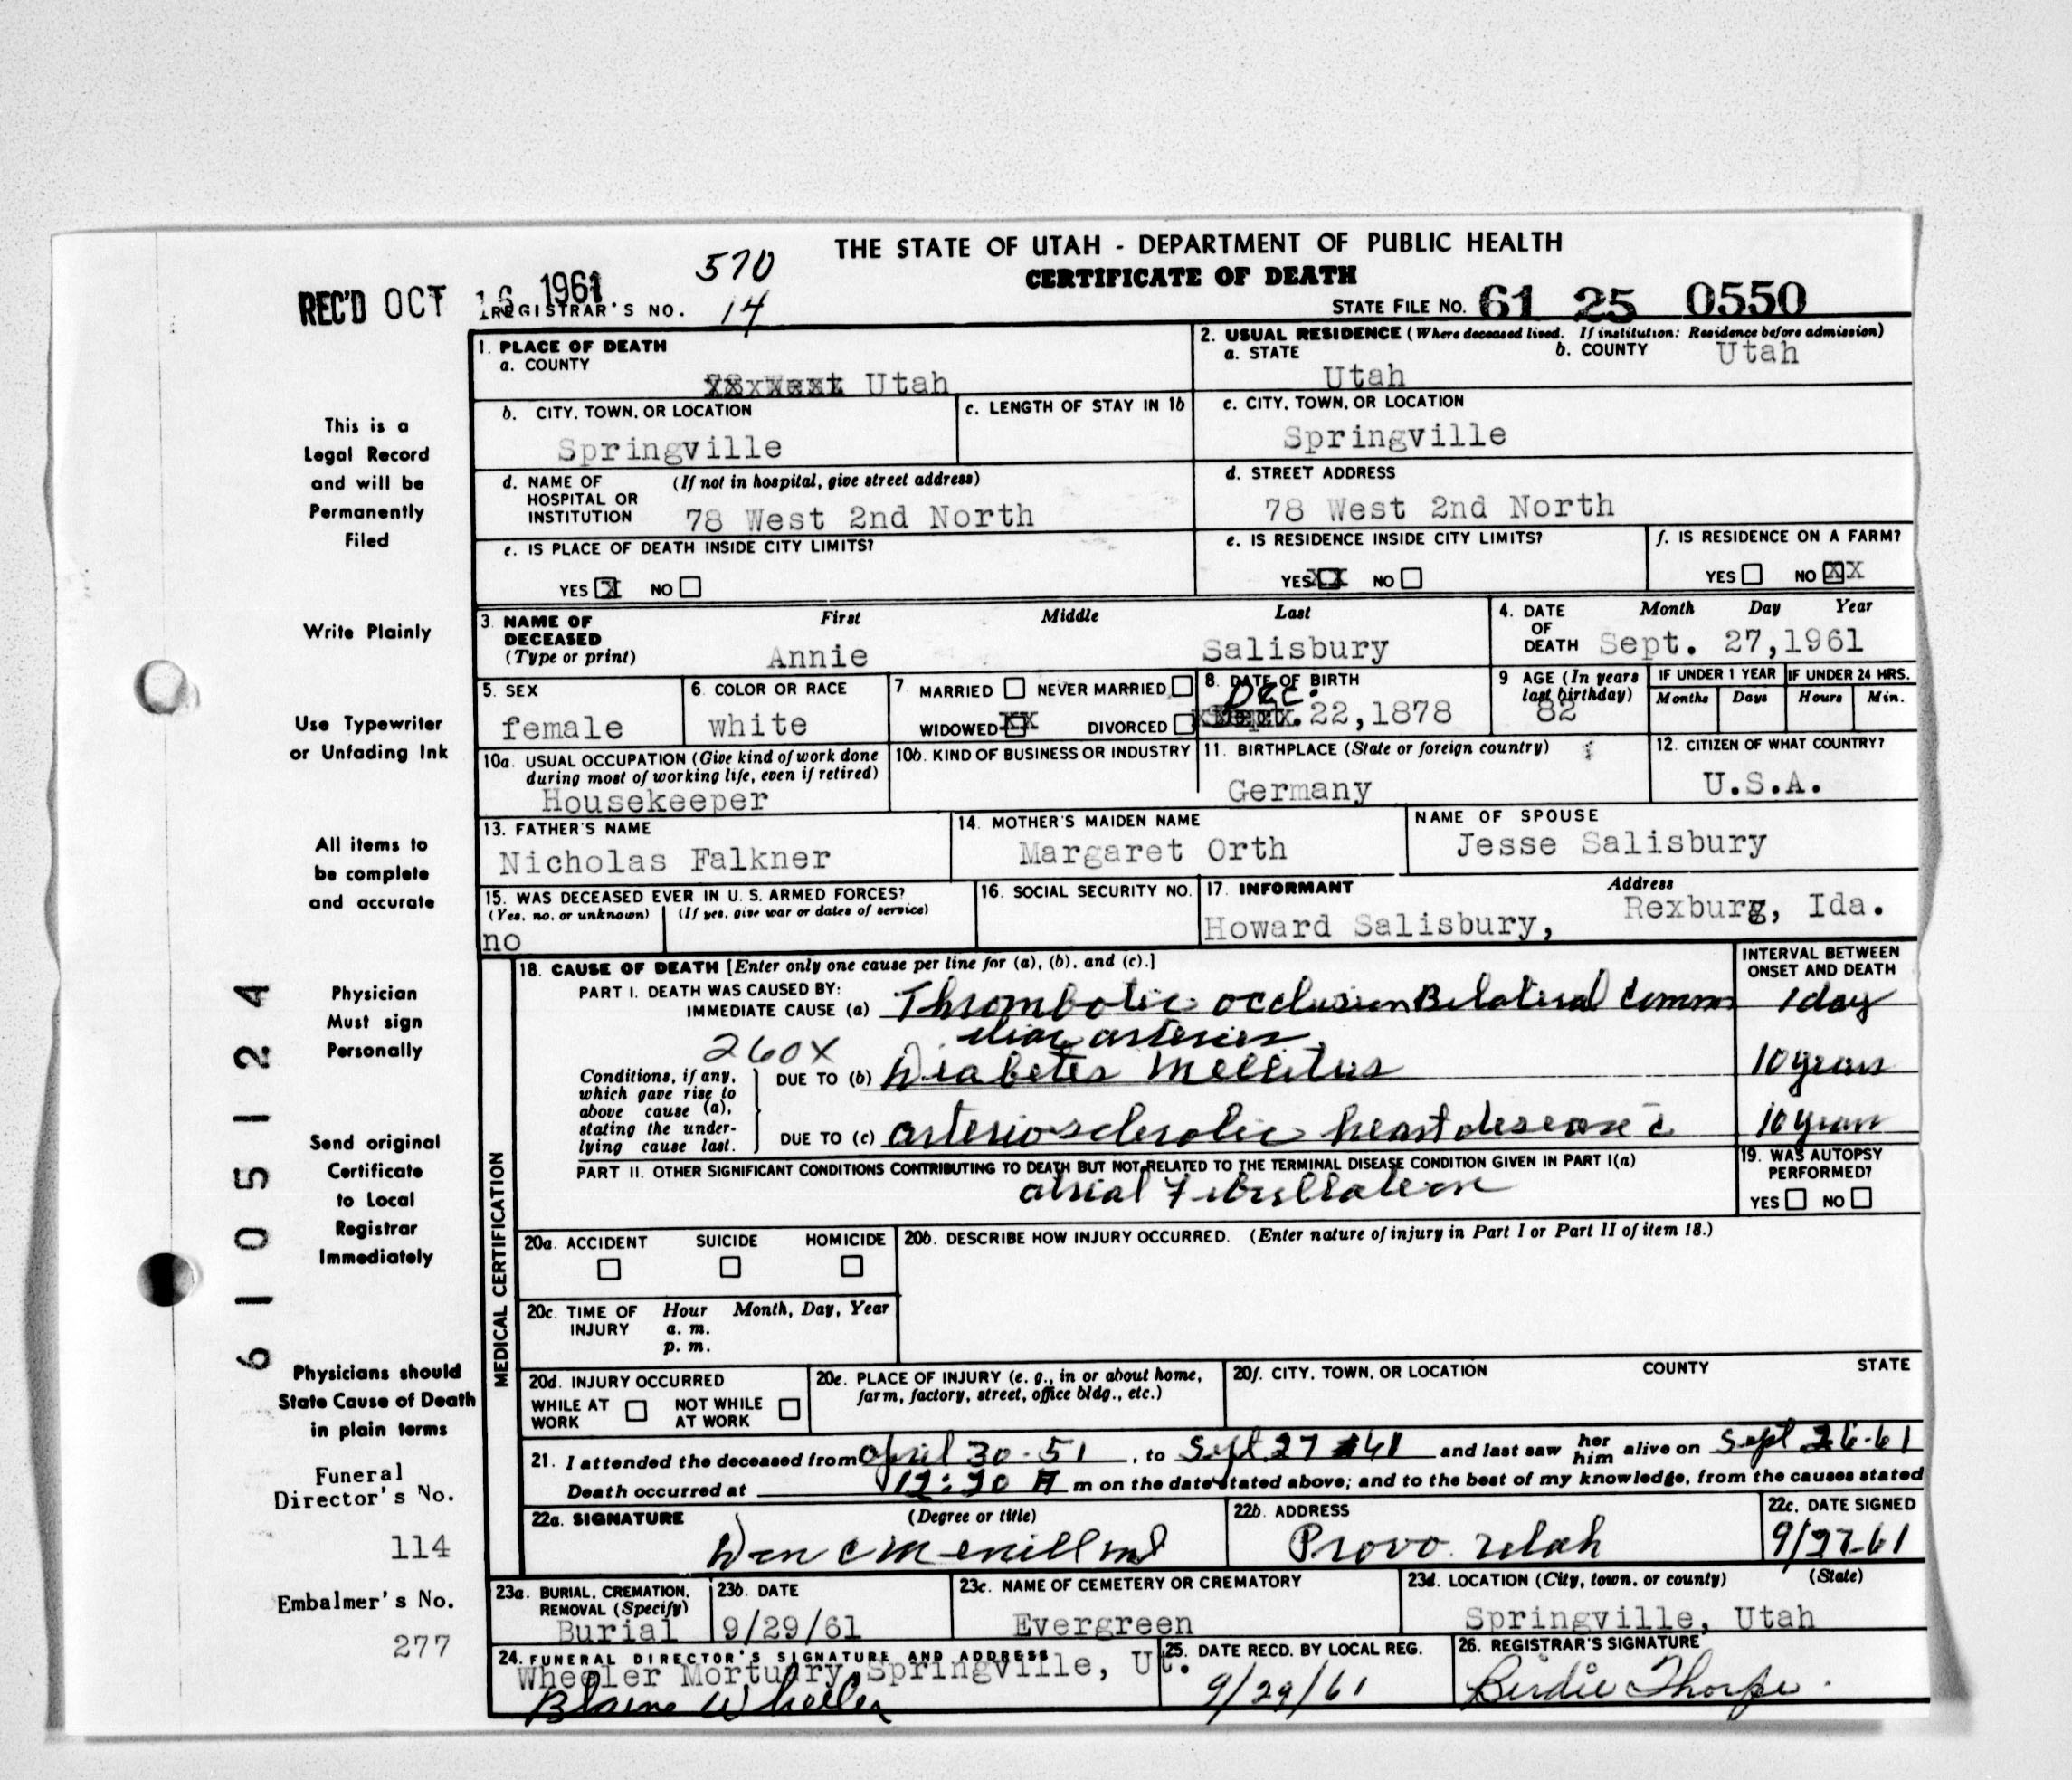 THE STATE OF UTAH - DEPARTMENT OF PUBLIC HEALTH
CERTIFICATE OF DEATH
REC'D OCT 16 1961
570
REGISTRAR'S NO. 14
STATE FILE NO. 61 25 0550
This is a
Legal Record
and will be
Permanently
Filed
Write Plainly
Use Typewriter
or Unfading Ink
All items to
be complete
and accurate
Physician
Must sign
Personally
Send original
Certificate
to Local
Registrar
Immediately
Physicians should
State Cause of Death
in plain terms
Funeral
Director's No.
114
Embalmer's No.
277
6105124
1. PLACE OF DEATH
a. COUNTY
Utah
2. USUAL RESIDENCE (Where deceased lived. If institution: Residence before admission)
a. STATE
Utah
b. COUNTY Utah
b. CITY, TOWN, OR LOCATION
Springville
c. LENGTH OF STAY IN 1b
c. CITY, TOWN, OR LOCATION
Springville
d. NAME OF HOSPITAL OR INSTITUTION (If not in hospital, give street address)
78 West 2nd North
d. STREET ADDRESS
78 West 2nd North
e. IS PLACE OF DEATH INSIDE CITY LIMITS?
YES X NO
e. IS RESIDENCE INSIDE CITY LIMITS?
YES XX NO
f. IS RESIDENCE ON A FARM?
YES NO XX
3. NAME OF DECEASED (Type or print)
First Middle Last
Annie Salisbury
4. DATE OF DEATH Month Day Year
Sept. 27,1961
5. SEX
female
6. COLOR OR RACE
white
7. MARRIED NEVER MARRIED
WIDOWED XX DIVORCED
8. DATE OF BIRTH
Dec. 22,1878
9 AGE (In years last birthday)
82
IF UNDER 1 YEAR IF UNDER 24 HRS.
Months Days Hours Min.
10a. USUAL OCCUPATION (Give kind of work done during most of working life, even if retired)
Housekeeper
10b. KIND OF BUSINESS OR INDUSTRY
11. BIRTHPLACE (State or foreign country)
Germany
12. CITIZEN OF WHAT COUNTRY?
U.S.A.
13. FATHER'S NAME
Nicholas Falkner
14. MOTHER'S MAIDEN NAME
Margaret Orth
NAME OF SPOUSE
Jesse Salisbury
15. WAS DECEASED EVER IN U.S. ARMED FORCES?
(Yes, no, or unknown) (If yes, give war or dates of service)
no
16. SOCIAL SECURITY NO.
17. INFORMANT Address
Howard Salisbury, Rexburg, Ida.
MEDICAL CERTIFICATION
18. CAUSE OF DEATH [Enter only one cause per line for (a), (b), and (c).]
INTERVAL BETWEEN ONSET AND DEATH
PART I. DEATH WAS CAUSED BY:
IMMEDIATE CAUSE (a) Thrombotic occlusion Bilateral Comm 1 day
iliac arteries
260X
Conditions, if any, which gave rise to above cause (a), stating the underlying cause last.
DUE TO (b) Diabetes Mellitus 10 years
DUE TO (c) arteriosclerotic heart disease c̄ 10 years
PART II. OTHER SIGNIFICANT CONDITIONS CONTRIBUTING TO DEATH BUT NOT RELATED TO THE TERMINAL DISEASE CONDITION GIVEN IN PART I(a)
atrial Fibrillation
19. WAS AUTOPSY PERFORMED?
YES NO
20a. ACCIDENT SUICIDE HOMICIDE
20b. DESCRIBE HOW INJURY OCCURRED. (Enter nature of injury in Part I or Part II of item 18.)
20c. TIME OF INJURY Hour Month, Day, Year
a. m.
p. m.
20d. INJURY OCCURRED
WHILE AT WORK NOT WHILE AT WORK
20e. PLACE OF INJURY (e. g., in or about home, farm, factory, street, office bldg., etc.)
20f. CITY, TOWN, OR LOCATION COUNTY STATE
21. I attended the deceased from April 30-51, to Sept. 27 61 and last saw her him alive on Sept 26-61
Death occurred at 12:20 A m on the date stated above; and to the best of my knowledge, from the causes stated
22a. SIGNATURE (Degree or title)
22b. ADDRESS
Provo Utah
22c. DATE SIGNED
9/27-61
23a. BURIAL, CREMATION, REMOVAL (Specify)
Burial
23b. DATE
9/29/61
23c. NAME OF CEMETERY OR CREMATORY
Evergreen
23d. LOCATION (City, town, or county) (State)
Springville, Utah
24. FUNERAL DIRECTOR'S SIGNATURE AND ADDRESS
Wheeler Mortuary, Springville, Ut.
Blaine Wheeler
25. DATE RECD. BY LOCAL REG.
9/29/61
26. REGISTRAR'S SIGNATURE
Birdie Thorpe.